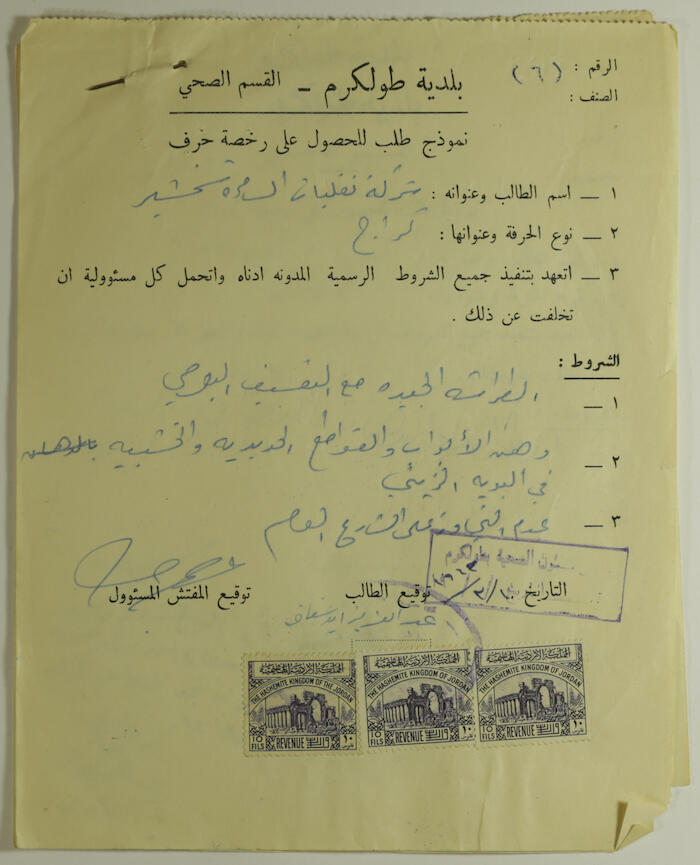 الرقم : (٦)
الصنف :
بلدية طولكرم – القسم الصحي
نموذج طلب للحصول على رخصة حرف
١ — اسم الطالب وعنوانه : شركة نقليات
٢ — نوع الحرفة وعنوانها : كراج
٣ — اتعهد بتنفيذ جميع الشروط الرسمية المدونه ادناه واتحمل كل مسئوولية ان
تخلفت عن ذلك .
الشروط :
١ — الجيده مع
٢ — ودهن الأبواب والقواطع الحديديه والخشبيه
في البويه الزيتي
٣ — عدم على الشارع العام
التاريخ
توقيع الطالب
توقيع المفتش المسئوول
عبد العزيز
المملكة الاردنية الهاشمية
THE HASHEMITE KINGDOM OF THE JORDAN
10 FILS
REVENUE
١٠
المملكة الاردنية الهاشمية
THE HASHEMITE KINGDOM OF JORDAN
10 FILS
REVENUE
١٠
المملكة الاردنية الهاشمية
THE HASHEMITE KINGDOM OF JORDAN
10 FILS
REVENUE
١٠